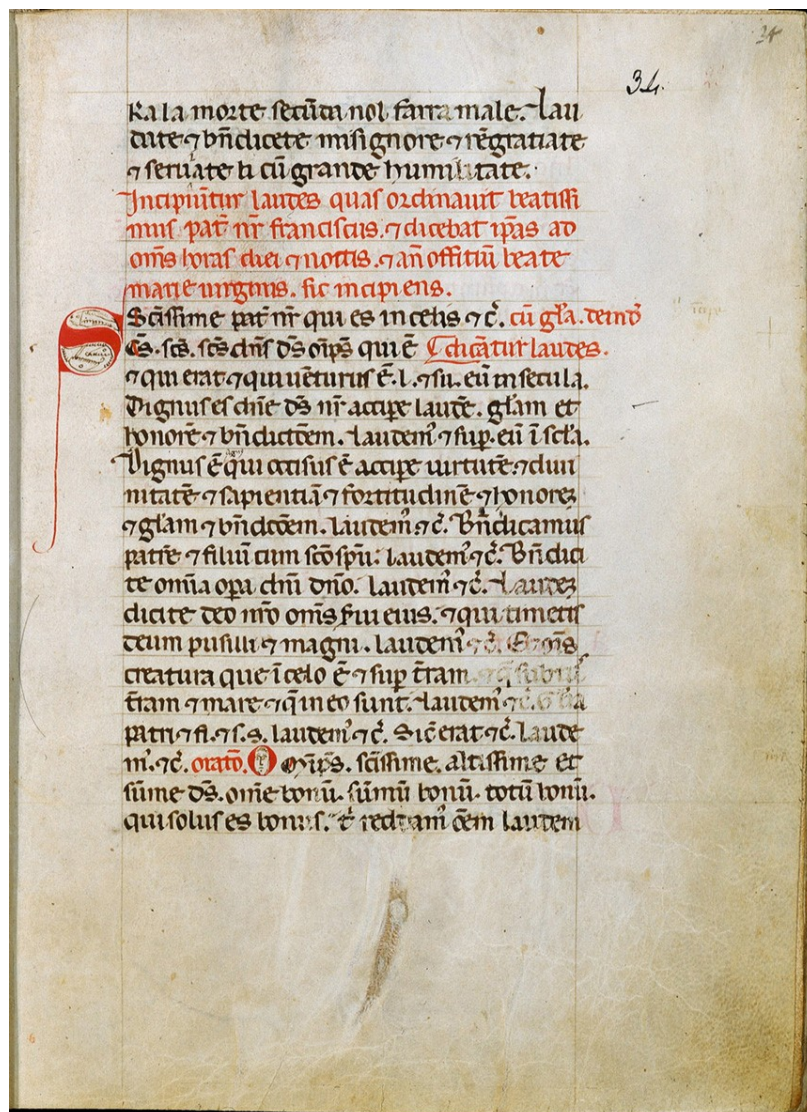 34
34.
Ka la morte secūda nol farra male. Lau
date ⁊ bn̄dicete misignore ⁊ rēgratiate
⁊ seruiate li cū grande humilitate.
Incipiūtur laudes quas ordinauit beatissi
mus pat̄ nr̄ franciscus. ⁊ dicebat ip̄as ad
om̄s horas diei ⁊ noctis. ⁊ an̄ offitiū beate
marie uirginis. sic incipiens.
Sc̄issime pat̄ nr̄ qui es in celis ⁊ c̄. cū gl̄a. deinō
Cs̄. sc̄s. sc̄s dn̄s ds̄ oīps̄ qui ē dicātur laudes.
⁊ qui erat ⁊ qui uēturus ē. l. ⁊ su. eū in secula.
Dignus es dn̄e ds̄ nr̄ accipe laudē. gl̄am et
honorē ⁊ bn̄dictōem. Laudem⁹ ⁊ sup. eū ī scl̄a.
Dignus ē qui occisus ē accipe uirtutē ⁊ diui
nitatē ⁊ sapientiā ⁊ fortitudinē ⁊ honorez
⁊ gl̄am ⁊ bn̄dctōem. Laudem⁹ ⁊c̄. Bn̄dicamus
patrē ⁊ filiū cum sc̄o sp̄u. laudem⁹ ⁊c̄. Bn̄dici
te omīa opa dn̄i dn̄o. Laudem⁹ ⁊c̄. Laudez
dicite deo nr̄o om̄s s̄ui eius. ⁊ qui timetis
deum pusilli ⁊ magni. laudem⁹ ⁊ c̄. Et om̄s
creatura que ī celo ē ⁊ sup t̄ram
t̄ram ⁊ mare ⁊ q̄ in eo sunt. Laudem⁹ ⁊c̄. Gl̄a
patri ⁊ fi. ⁊ s. s. laudem⁹ ⁊c̄. Sic̄ erat ⁊c̄. laude
m⁹. ⁊c̄. oratō. O om̄ps̄. sc̄issime. altissime et
sūme ds̄. omē bonū. sūmū bonū. totū bonū.
qui solus es bonus. t̄ reddam⁹ ōem laudem